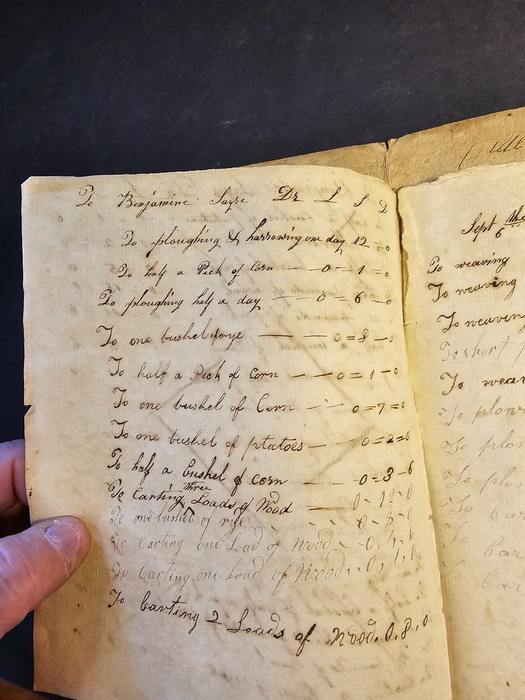 To Benjamine Sayre Dr L S D
To ploughing & harrowing one day 12=0
To half a Peck of Corn — 0=1=0
To ploughing half a day — 0=6—0
To one bushel of rye — 0=8—0
To half a Peck of Corn — 0=1—0
To one bushel of Corn — 0=7=0
To one bushel of ptatoes — 0=2=0
To half a bushel of corn — 0=3-6
To Carting three Loads of Wood
To one bushel of
To Carting one Load of Wood
To Carting one Load of Wood
To Carting 2 Loads of Wood. 0.8.0
Sept 6
To weaving
To weaving
To weavin
To short
To wea
To plow
To plo
To plo
To